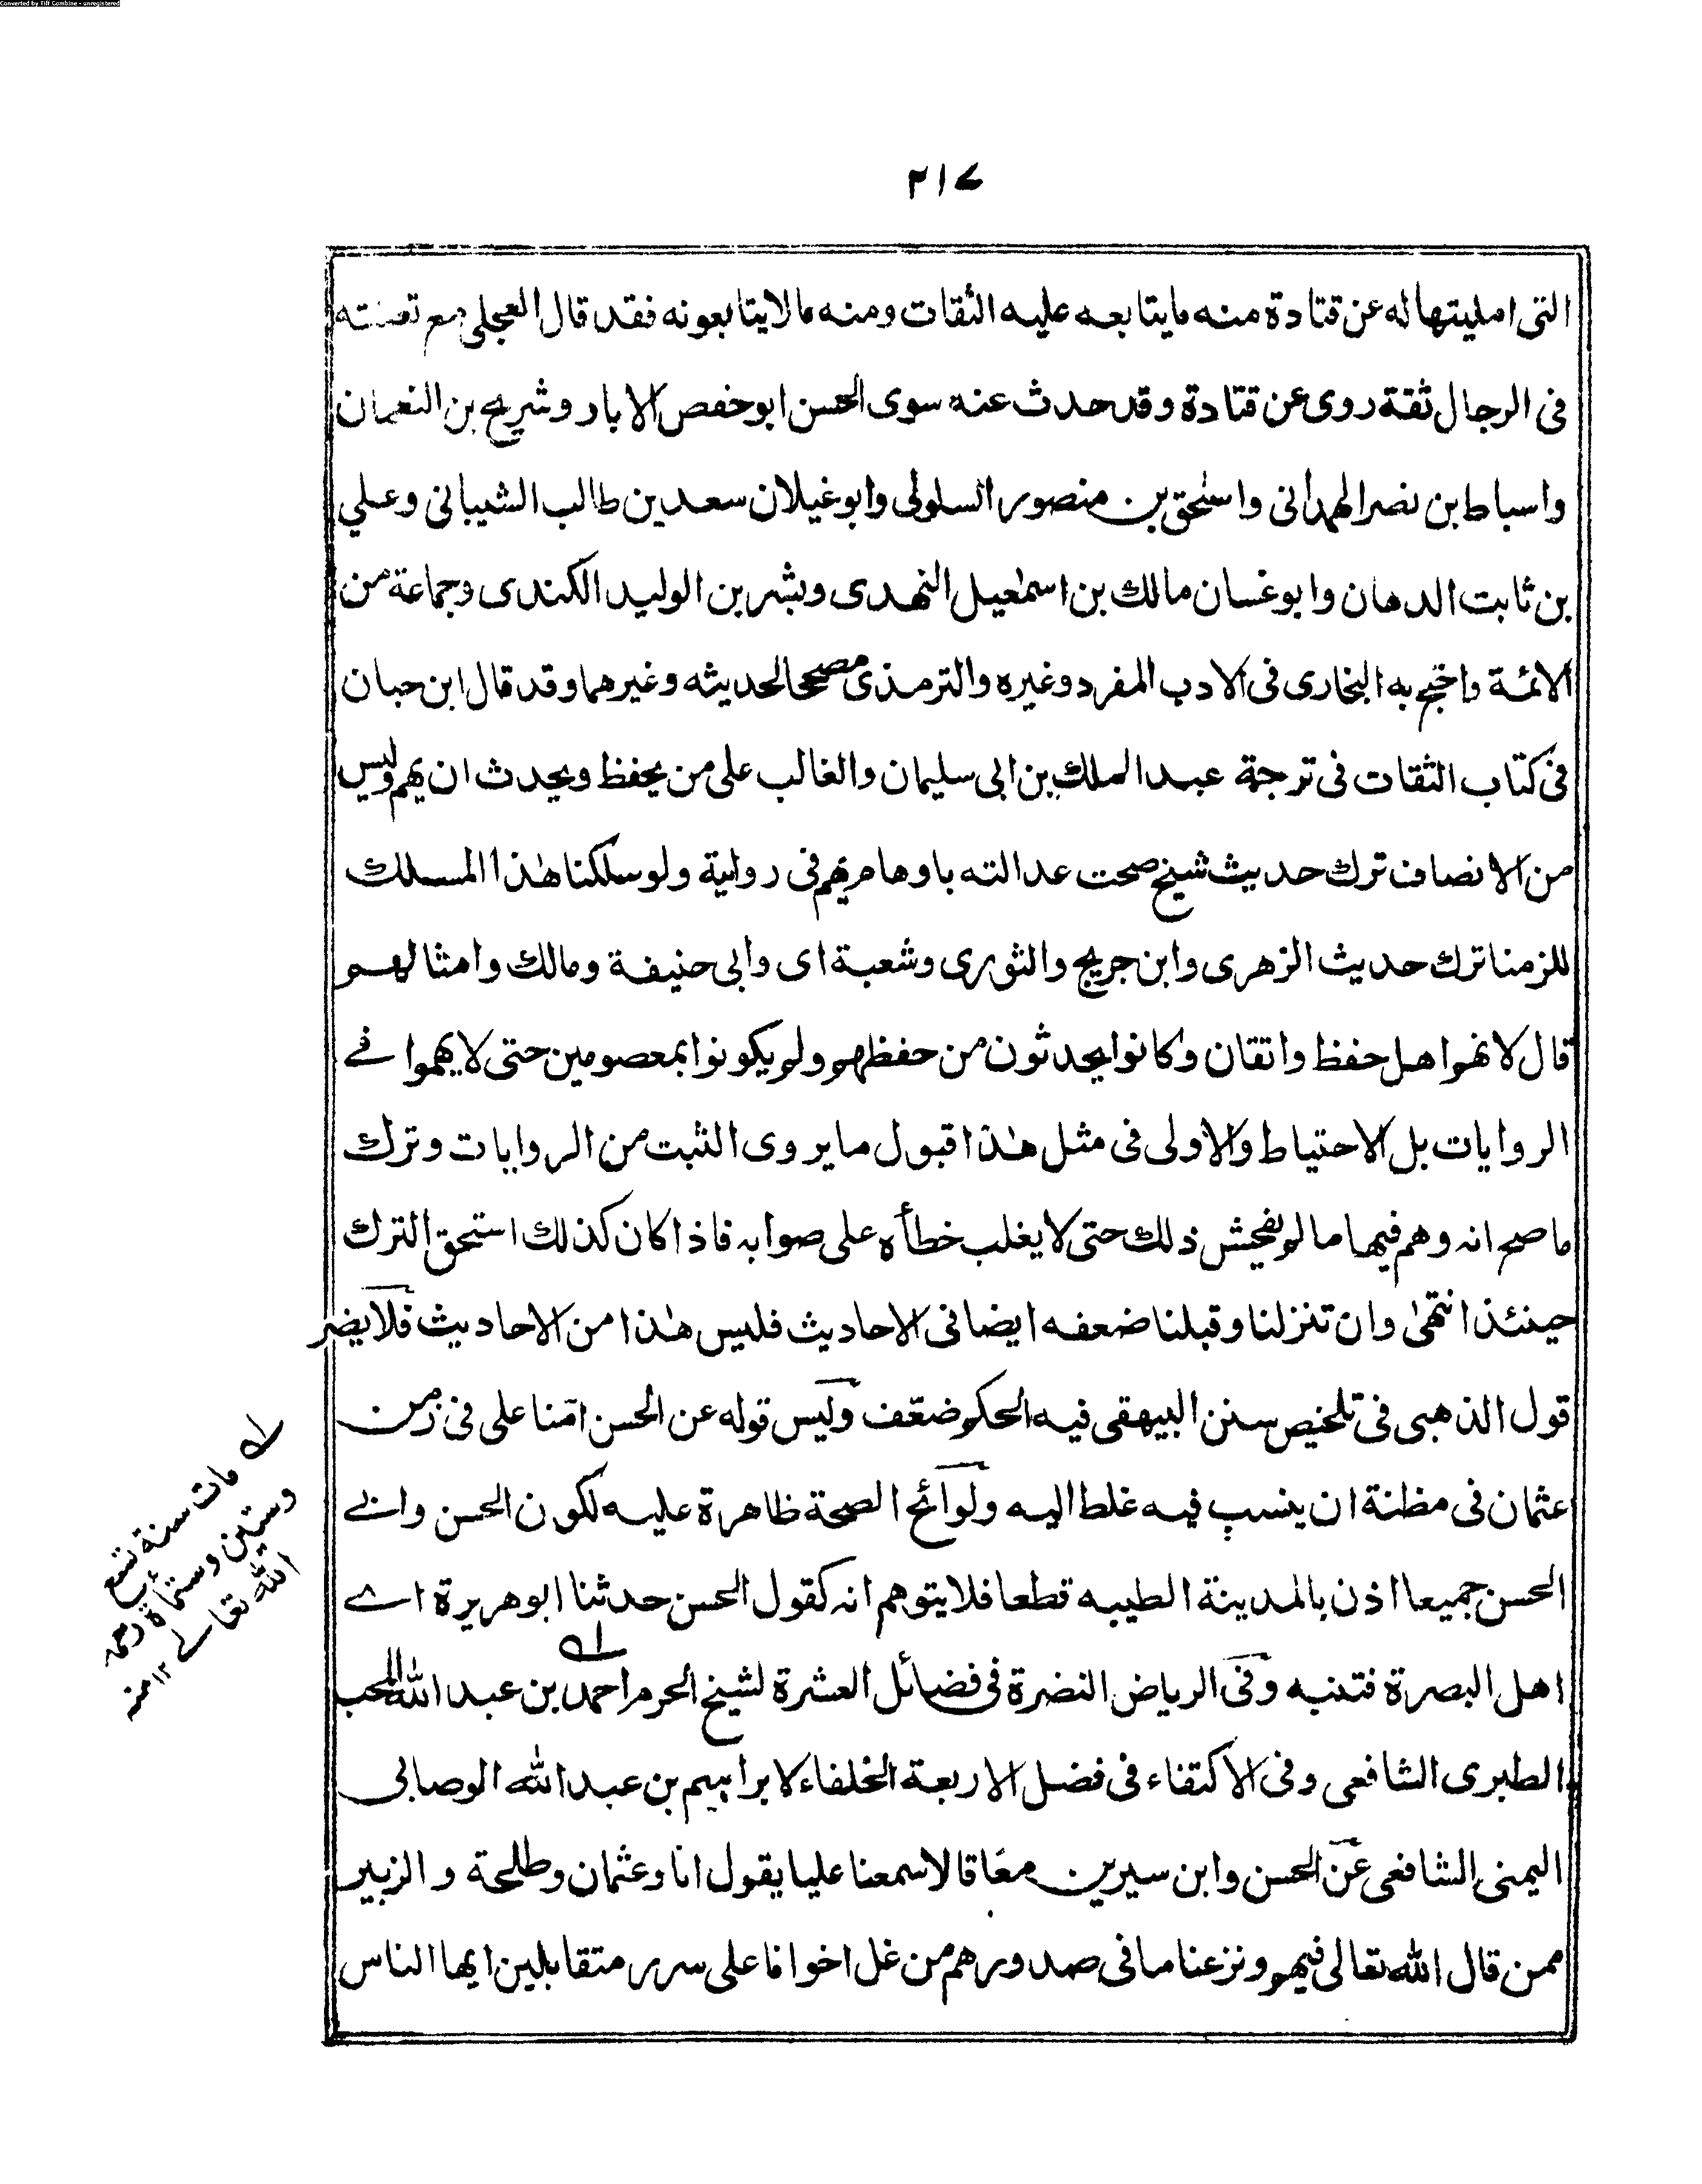 Converted by Tiff Combine - unregistered
٢١٧
التى امليتها له عن قتادة منه ما يتابعه عليه الثقات ومنه ما لا يتابعونه فقد قال العجلى مع تعنته
فى الرجال ثقة روى عن قتادة وقد حدث عنه سوى الحسن ابو حفص الابار وشريح بن النعمان
واسباط بن نصر الهمدانى واسحٰق بن منصور السلولى وابو غيلان سعد بن طالب الشيبانى وعلي
بن ثابت الدهان وابو غسان مالك بن اسمٰعيل النهدى وبشر بن الوليد الكندى وجماعة من
الائمة واحتج به البخارى فى الادب المفرد وغيره والترمذى مصححا لحديثه وغيرهما وقد قال ابن حبان
فى كتاب الثقات فى ترجمة عبد الملك بن ابى سليمان والغالب على من يحفظ ويحدث ان يهم وليس
من الانصاف ترك حديث شيخ صحت عدالته باوهام يهم فى رواية ولو سلكنا هٰذا المسلك
للزمنا ترك حديث الزهرى وابن جريج والثورى وشعبة اى وابى حنيفة ومالك وامثالهم
قال لانهم اهل حفظ واتقان وكانوا يحدثون من حفظهم ولم يكونوا بمعصومين حتى لا يهموا فے
الروايات بل الاحتياط والاولى فى مثل هٰذا قبول ما يروى الثبت من الروايات وترك
ما صح انه وهم فيها ما لم يفحش ذلك حتى لا يغلب خطأه على صوابه فاذا كان كذلك استحق الترك
حينئذ انتهىٰ وان تنزلنا وقبلنا ضعفه ايضا فى الاحاديث فليس هٰذا من الاحاديث فلا يضر
قول الذهبى فى تلخيص سنن البيهقى فيه الحكم ضعّف وليس قوله عن الحسن امّنا على فى زمن
عثمان فى مظنة ان ينسب فيه غلط اليه ولوائح الصحة ظاهرة عليه لكون الحسن وابے
الحسن جميعا اذن بالمدينة الطيبه قطعا فلا يتوهم انه كقول الحسن حدثنا ابو هريرة اے
اهل البصرة فتنبه وفى الرياض النضرة فى فضائل العشرة لشيخ الحرم احمد بن عبد الله المحب
الطبرى الشافعى وفى الاكتفاء فى فضل الاربعة الخلفاء لابراهيم بن عبد الله الوصابى
اليمنى الشافعى عن الحسن وابن سيرين معًا قالا سمعنا عليا يقول انا وعثمان وطلحة والزبير
ممن قال الله تعالى فيهم ونزعنا ما فى صدورهم من غل اخوانا على سرر متقابلين ايها الناس
لے مات سنة تسع
وستين وستمأة رحمه
الله تعالے ١٢ منه